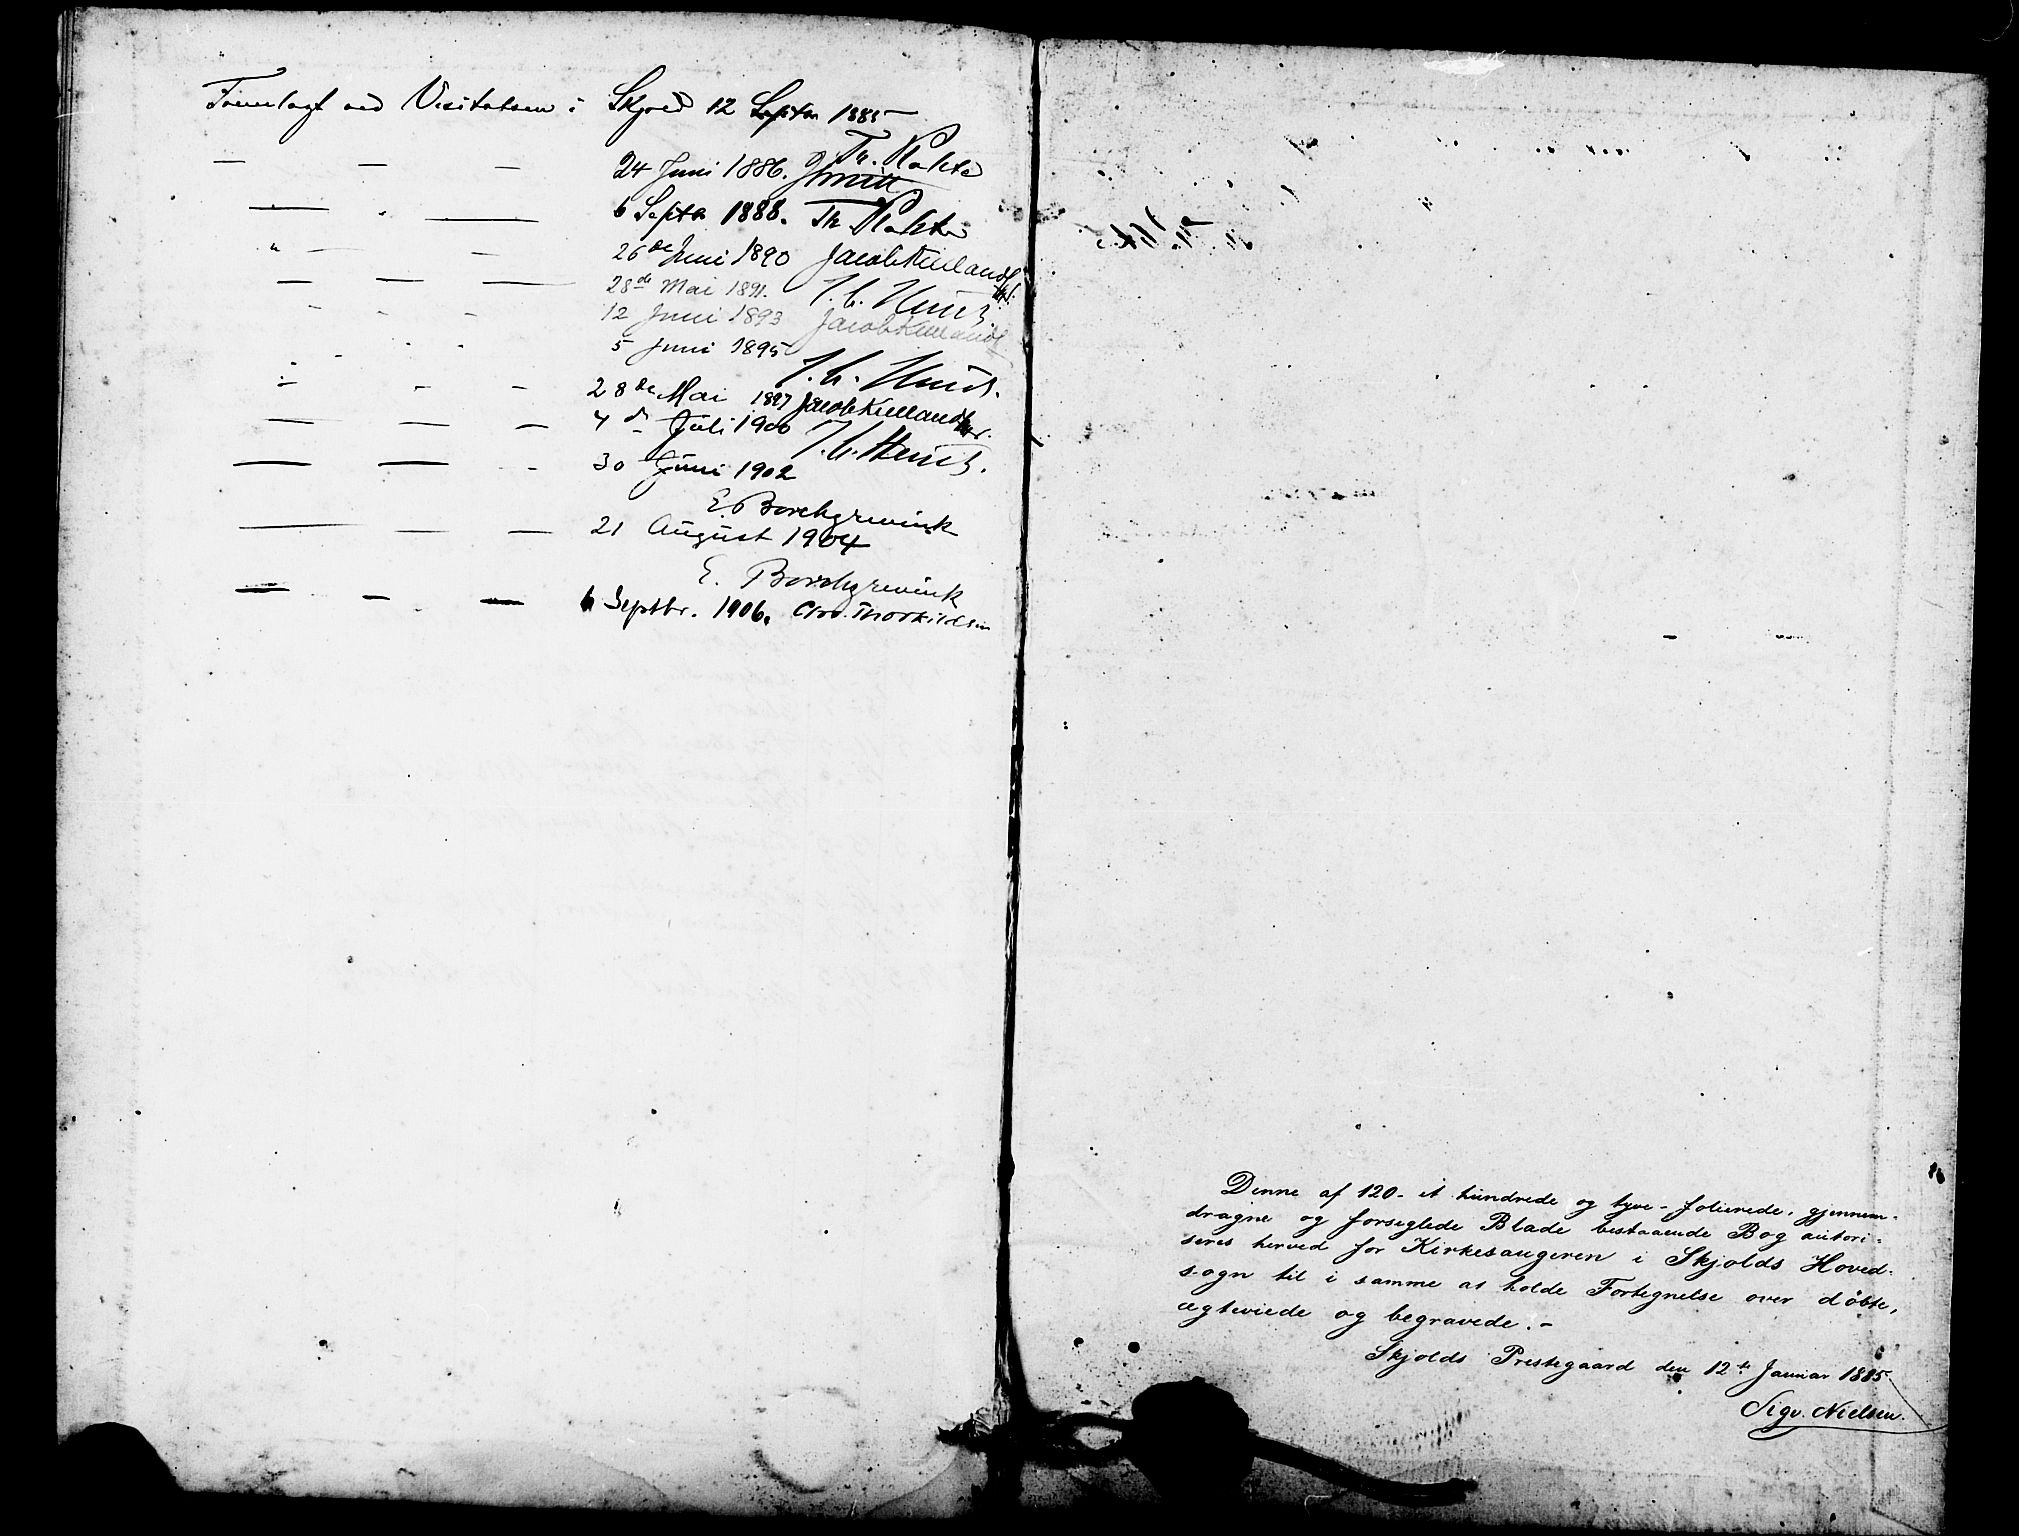 Foreelagt ved Visitatsen i Skjold 12 Septbr 1885
— — — 24 Juni 1886.
— „ — 6 Septbr 1888.
„ — — 26de Juni 1890 Jacob Kielland
— — — 28de Mai 1891. J. C. Heuch
- - - 12 Juni 1893 Jacob Kielland
- - - 5 Juni 1895
J. C. Heuch.
- - - 28de Mai 1897 Jacob Kielland
— — — 4de Juli 1900
J. C. Heuch.
— — - 30 Juni 1902
E. Borchgrevink
— — — 21 August 1904
E. Borchgrevink
— — — 6 Septbr. 1906. Chr. Thorkildsen
Denne af 120 - et hundrede og tyve - folierede, gjennem-
dragne og forseglede Blade bestaaende Bog autori-
seres herved for Kirkesangeren i Skjolds Hoved-
sogn til i samme at holde Fortegnelse over døbte,
ægteviede og begravede. -
Skjolds Prestegaard den 12te Januar 1885
Sigv. Nielsen.